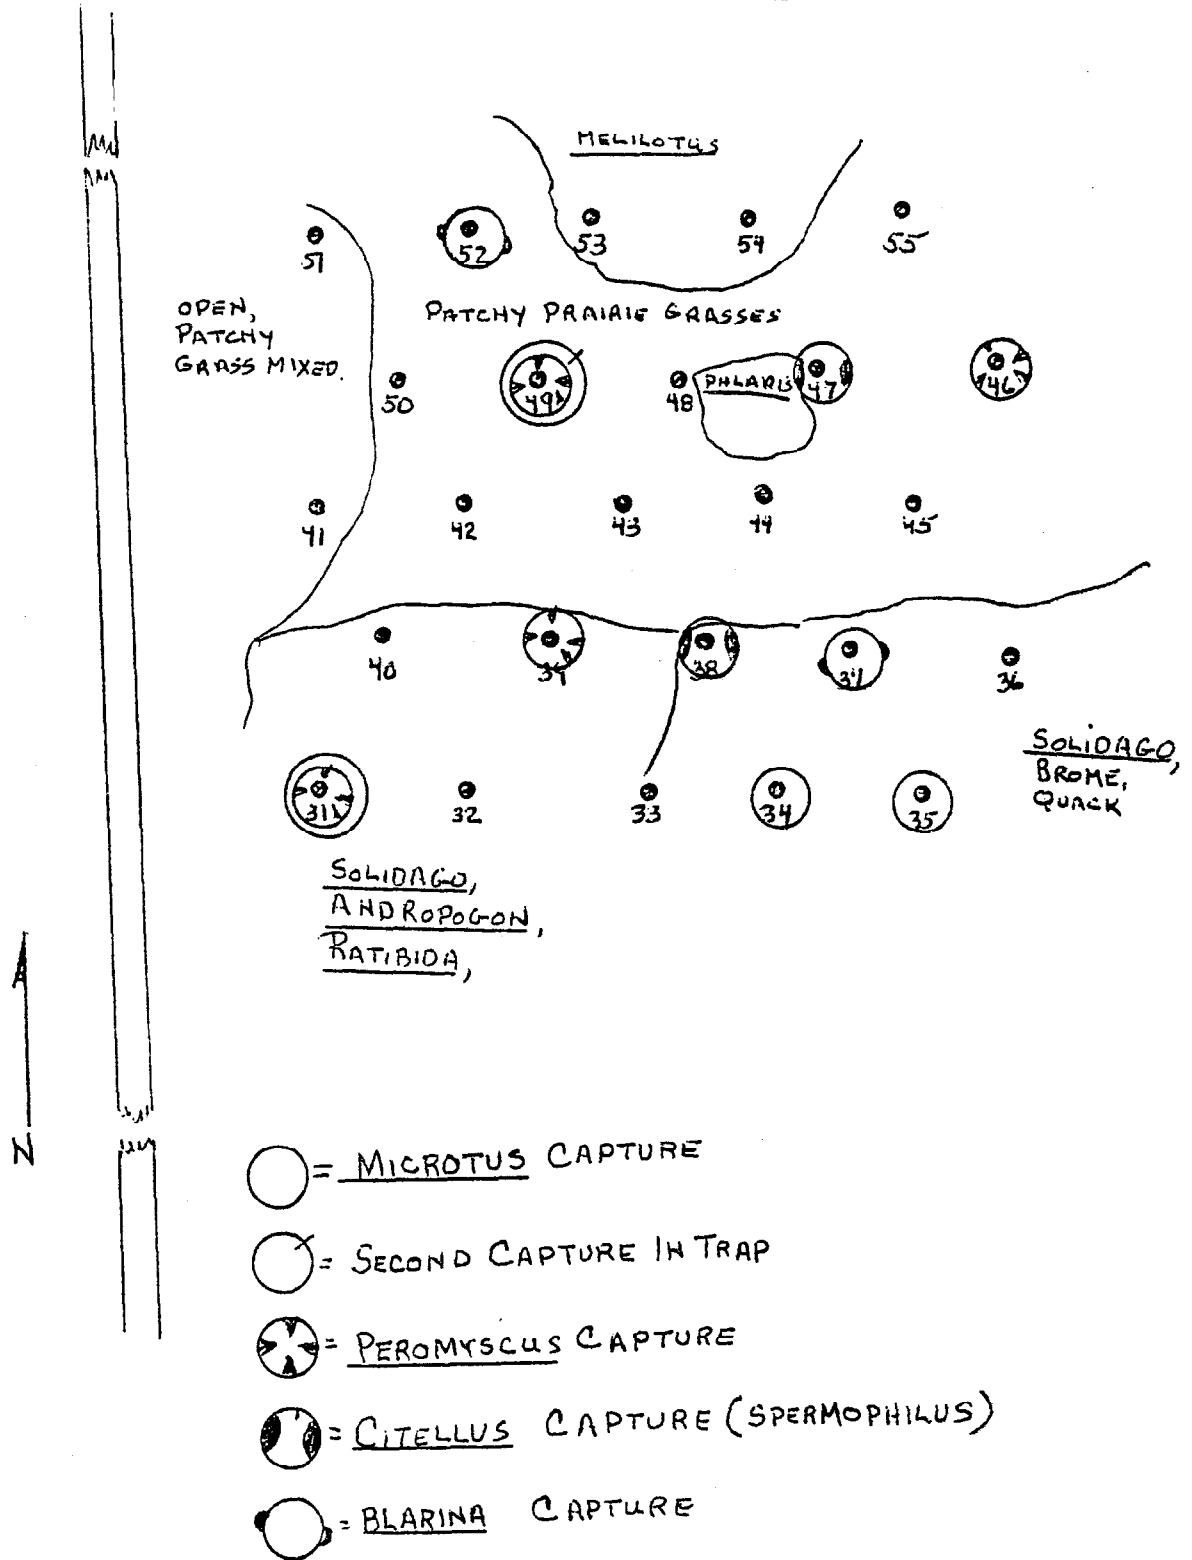 MELILOTUS
51
52
53
54
55
OPEN,
PATCHY
GRASS MIXED.
PATCHY PRAIRIE GRASSES
50
49
48
PHLARIS
47
46
41
42
43
44
45
40
39
38
37
36
SOLIDAGO,
BROME,
QUACK
31
32
33
34
35
SOLIDAGO,
ANDROPOGON,
RATIBIDA,
N
= MICROTUS CAPTURE
= SECOND CAPTURE IN TRAP
= PEROMYSCUS CAPTURE
= CITELLUS CAPTURE (SPERMOPHILUS)
= BLARINA CAPTURE